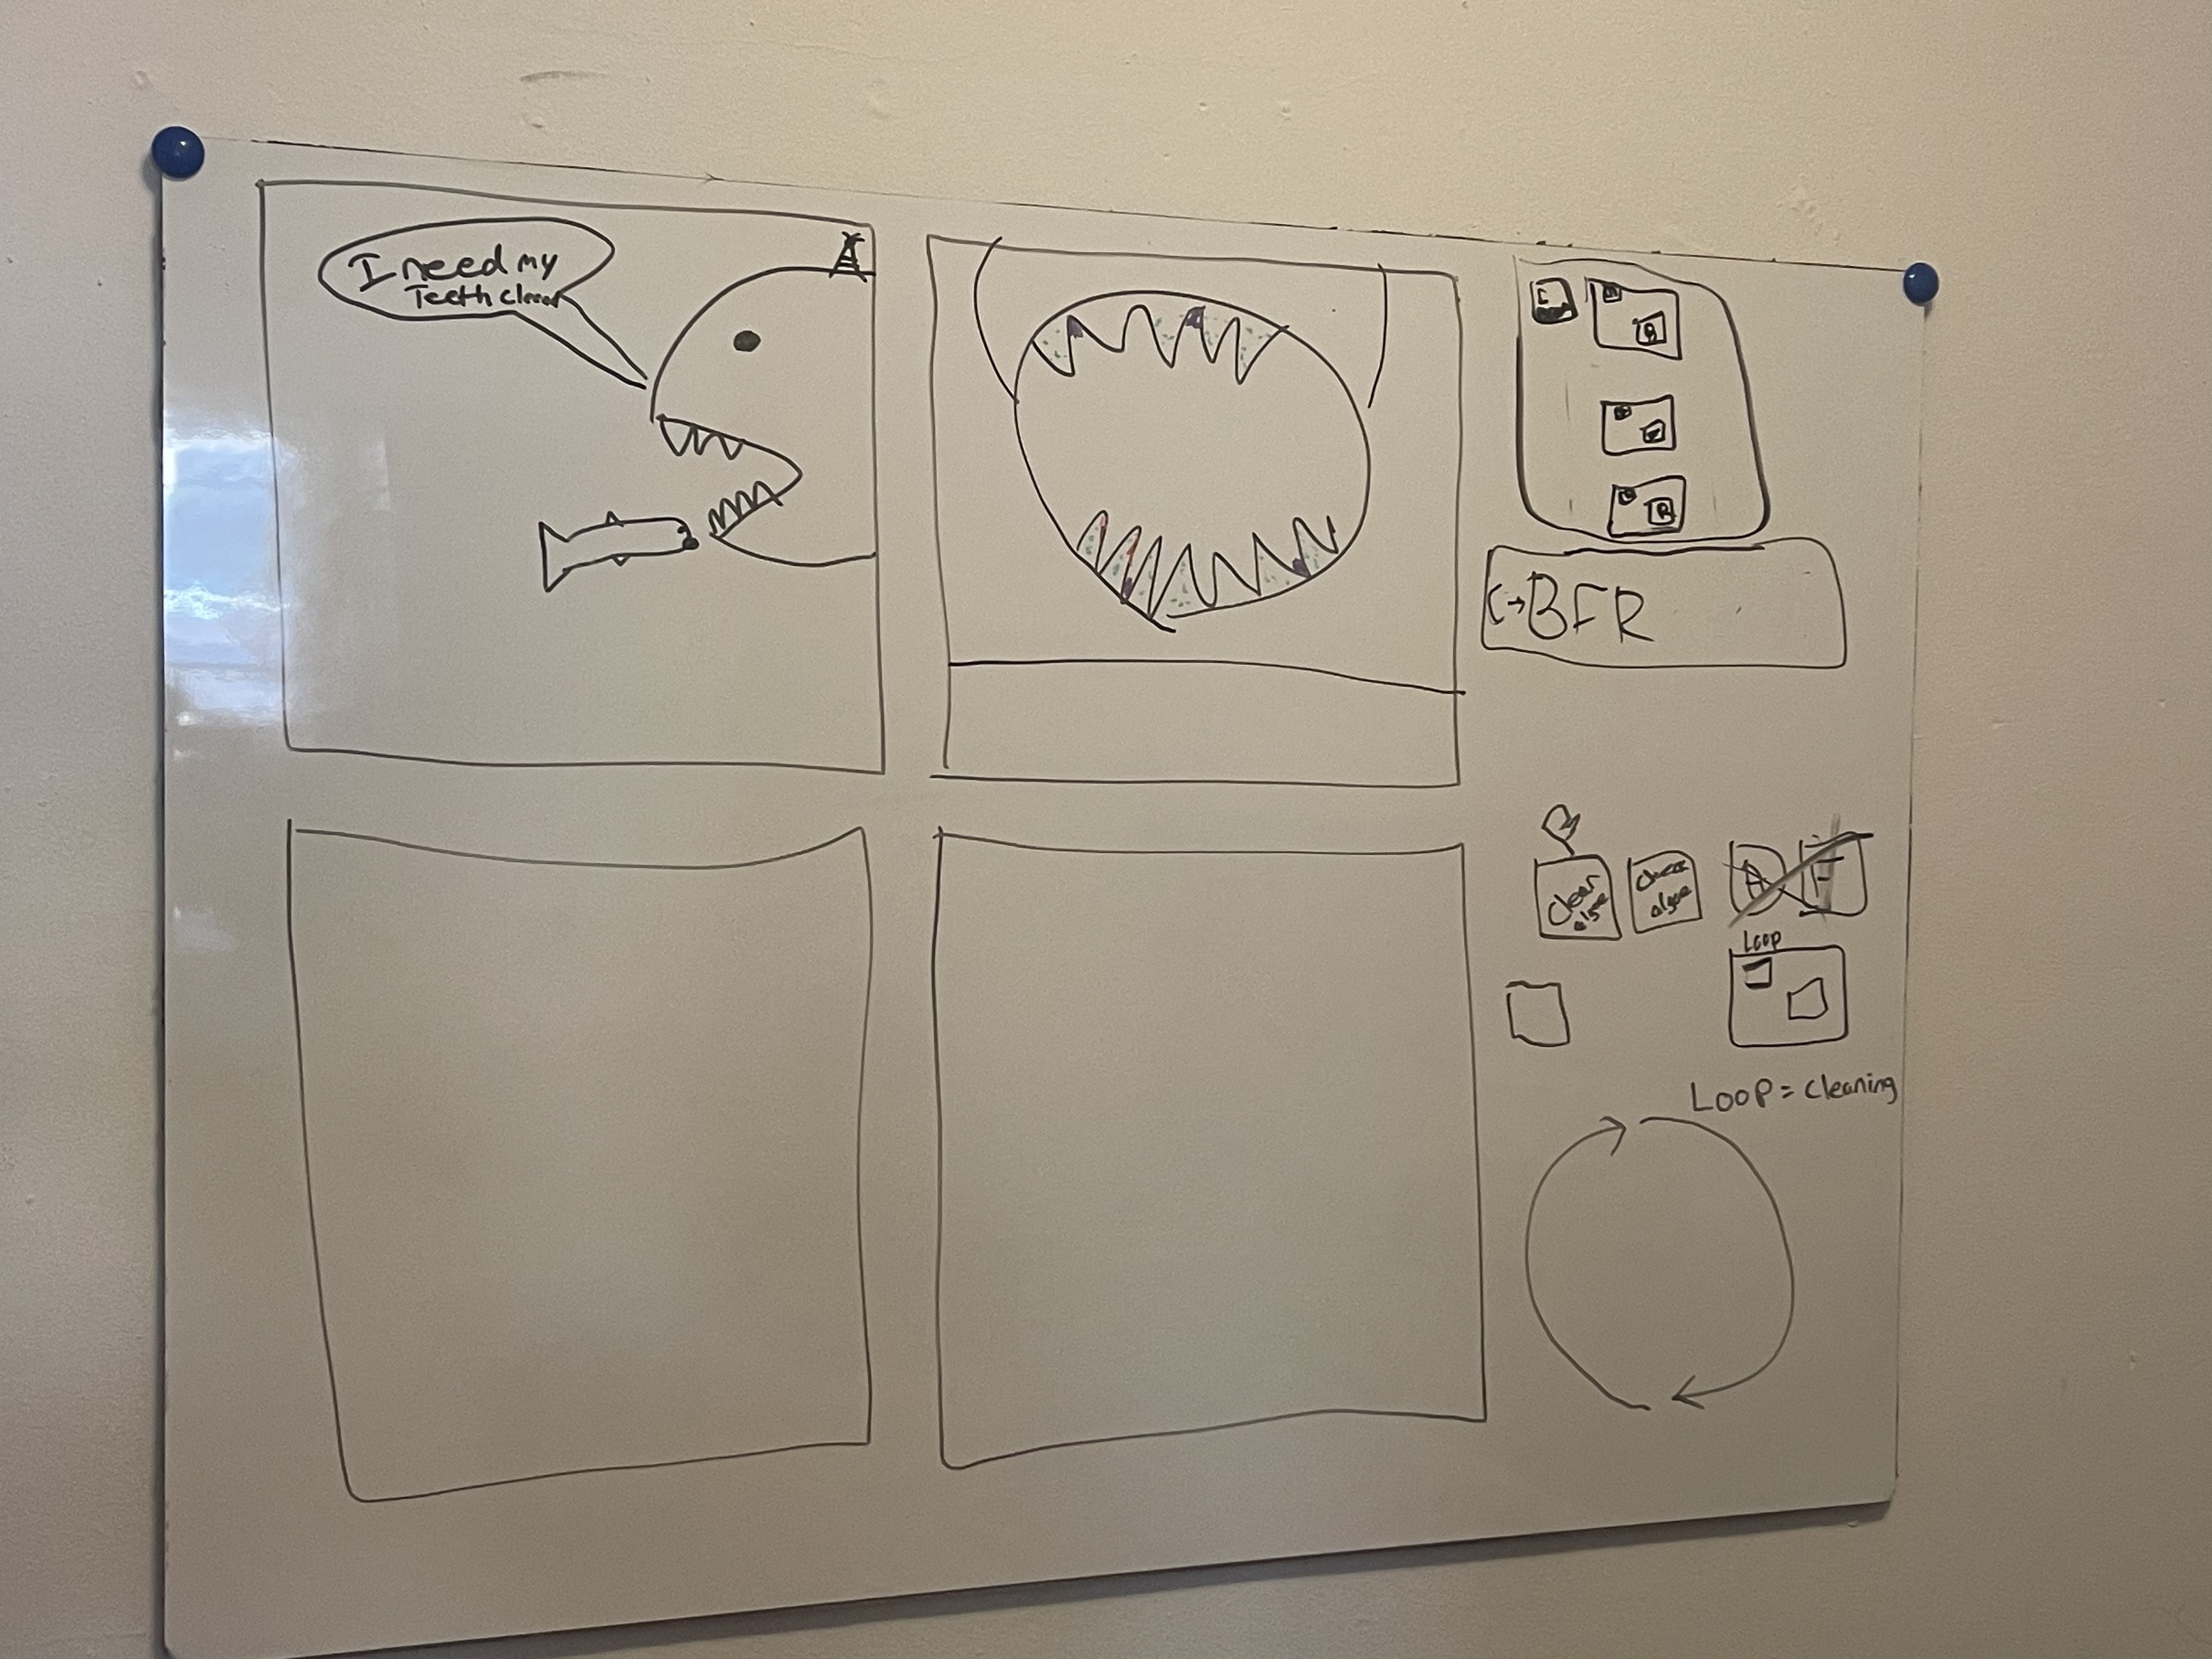 I need my
Teeth clean
C→BFR
Clear
algae
Check
algae
Loop
Loop = cleaning